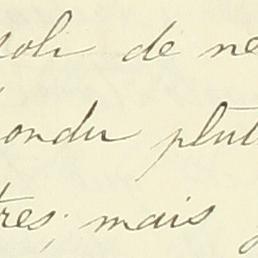 soli de ne
ondu plut
tres; mais